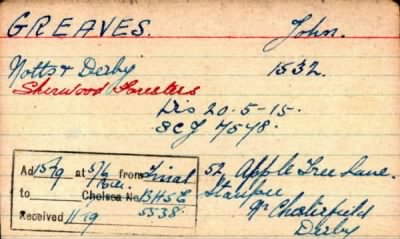 GREAVES. John.
Notts & Derby 1532.
Sherwood Foresters
Dis 20-5-15.
SCJ 7548.
Ad 15/9 at 5/6 from Final
to Chelsea No BHSE
Received 11/19 5538.
52, Apple Tree Lane.
Nr Chesterfield
Derby